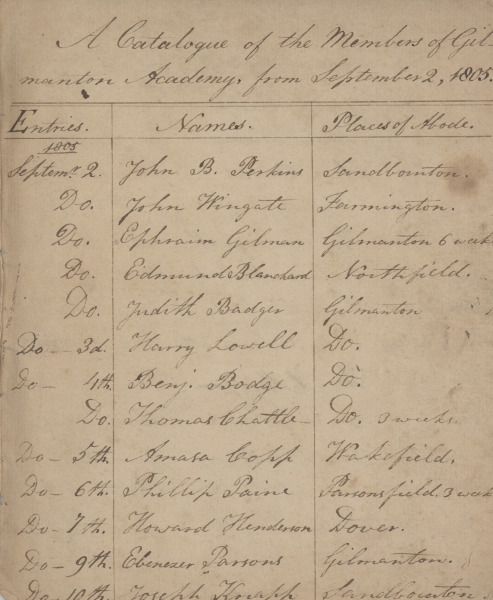 A Catalogue of the Members of Gil-
manton Academy, from September 2, 1805.
Entries. Names. Places of Abode.
1805
Septemr 2. John B. Perkins Sandbornton.
Do. John Wingate Farmington.
Do. Ephraim Gilman Gilmanton 6 weeks
Do. Edmund Blanchard Northfield.
Do. Judith Badger Gilmanton
Do — 3d. Harry Lowell Do.
Do — 4th. Benj. Bodge Do.
Do. Thomas Chattle— Do. 3 weeks.
Do — 5th. Amasa Copp Wakefield.
Do — 6th. Phillip Paine Parsonsfield. 3 week
Do — 7th. Howard Henderson Dover.
Do — 9th. Ebenezer Parsons Gilmanton.
Do — 10th. Joseph Knapp Sandbornton